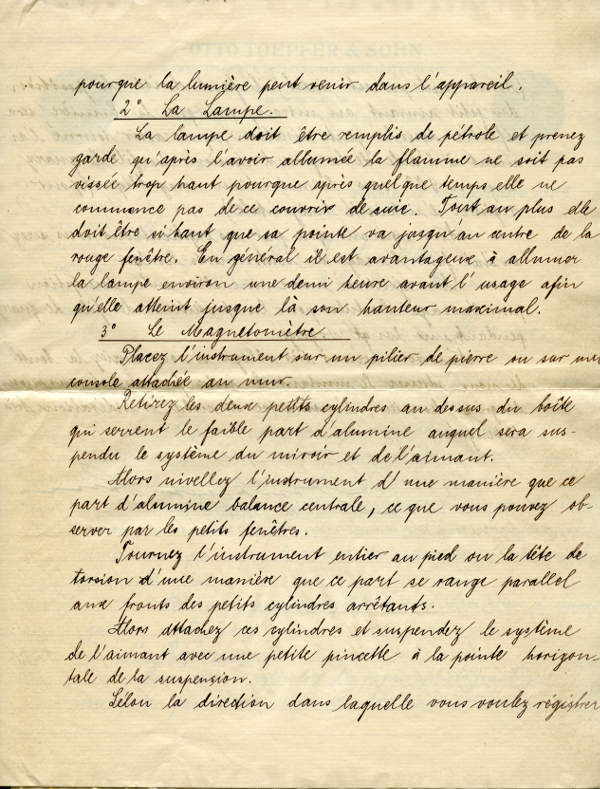 pourque la lumière peut venir dans l'appareil.
2° La Lampe.
La lampe doit être remplis de pétrole et prenez
garde qu'après l'avoir allumée la flamme ne soit pas
vissée trop haut pourque après quelque temps elle ne
commence pas de ce couvrir de suie. Tout au plus elle
doit être si haut que sa pointe va jusqu'au centre de la
rouge fenêtre. En général il est avantageux à allumer
la lampe environ une demi heure avant l'usage afin
qu'elle atteint jusque là son hauteur maximal.
3° Le Magnetomètre.
Placez l'instrument sur un pilier de pierre ou sur une
console attachée au mur.
Retirez les deux petits cylindres au dessus du boîte
qui serrent le faible part d'alumine auquel sera sus-
pendu le système du miroir et de l'aimant.
Alors nivellez l'instrument d'une manière que ce
part d'alumine balance centrale, ce que vous pouvez ob-
server par les petits fenêtres.
Tournez l'instrument entier au pied ou la tête de
torsion d'une manière que ce part se range parallel
aux fronts des petits cylindres arrêtants.
Alors attachez ces cylindres et suspendez le système
de l'aimant avec une petite pincette à la pointe horizon-
tale de la suspension.
Sélon la direction dans laquelle vous voulez régistrer
OTTO TOEPFER & SOHN